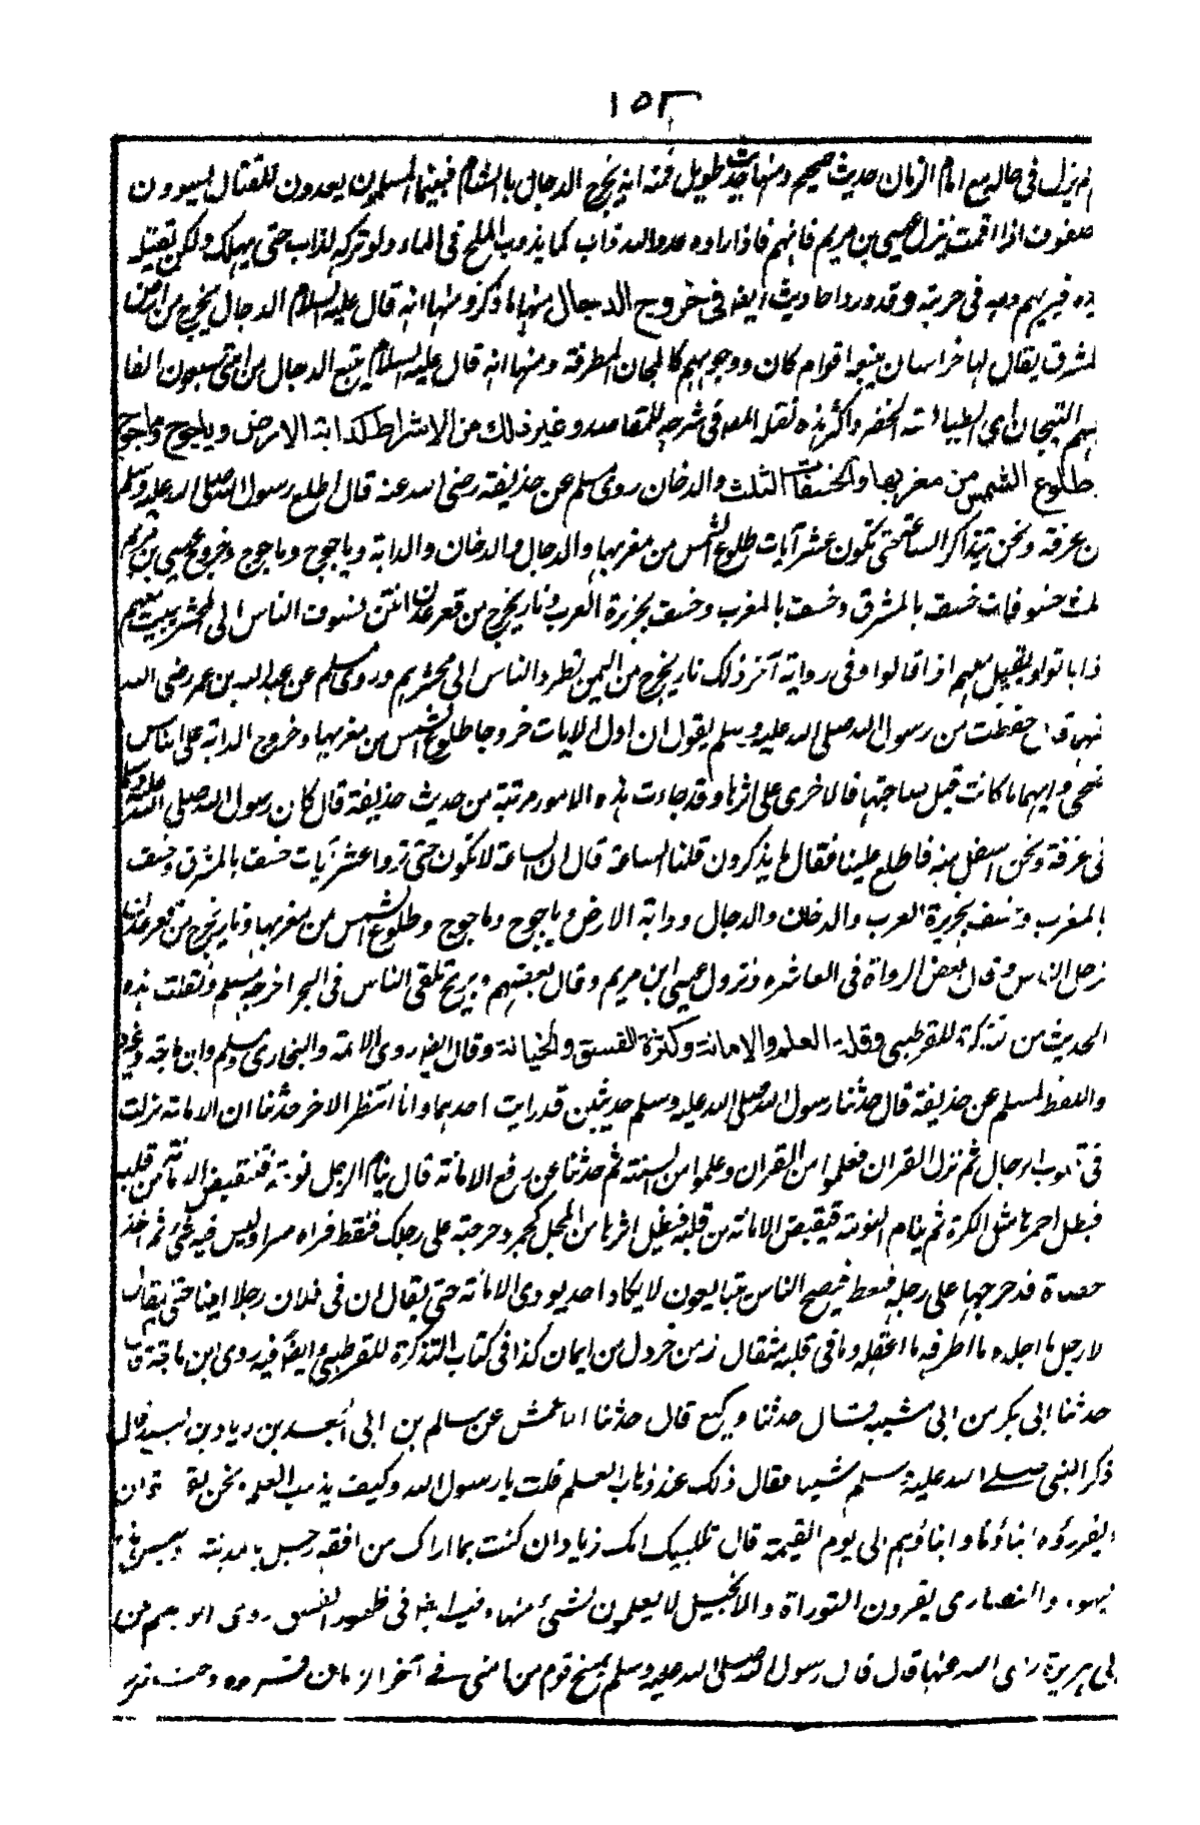 ١٥٢
لم ينزل فى حاله مع امام الزمان حديث صحيح ومنها حديث طويل فمنه انه يخرج الدجال بالشام فبينما المسلمون يعدون للقتال يسوون
صفوف اذا اقمت ينزل عيسى بن مريم فانهم فاذا راوه عدو الله ذاب كما يذوب الملح فى الماء ولو تركه لذاب حتى يهلك ولكن يقتله
يده فيريهم دمه فى حربته وقد ورد احاديث ايضا فى خروج الدجال منها ما ذكر ومنها انه قال عليه السلام الدجال يخرج من ارض
لمشرق يقال لها خراسان يتبعه اقوام كان وجوههم كالمجان المطرقة ومنها انه قال عليه السلام يتبع الدجال من امتى سبعون الفا
يهم التيجان اى الطيالسته الخضر واكثر هذه نقله المصـ فى شرحه للمقاصد وغير ذلك من الاشراط كدابة الارض وياجوج وماجوج
طلوع الشمس من مغربها والخسفات الثلث والدخان روى مسلم عن حذيفة رضى الله عنه قال اطلع رسول الله صلى الله عليه وسلم
ن عرفة ونحن نتذاكر الساعة حتى تكون عشر آيات طلوع الشمس من مغربها والدجال والدخان والدابة وياجوج وماجوج وخروج عيسى بن مريم
لث خسوفات خسف بالمشرق وخسف بالمغرب وخسف بجزيرة العرب ونار يخرج من قعر عدن ابين تسوق الناس الى المحشر يبيت معهم
ذا باتوا ويقيل معهم اذا قالوا وفى رواية آخر ذلك نار يخرج من اليمن تطرد الناس الى محشرهم وروى مسلم عن عبد الله بن عمر رضى الله
نهما قال حفظت من رسول الله صلى الله عليه وسلم يقول ان اول الايات خروجا طلوع الشمس من مغربها وخروج الدابة على الناس
ضحى وايهما ما كانت قبل صاحبتها فالاخرى على اثرها وقد جاءت هذه الامور مرتبة من حديث حذيفة قال كان رسول الله صلى الله عليه وسلم
فى غرفة ونحن اسفل منه فاطلع علينا فقال ما يذكرون قلنا الساعة قال ان الساعة لا تكون حتى تروا عشر آيات خسف بالمشرق وخسف
بالمغرب وخسف بجزيرة العرب والدخان والدجال ودابة الارض وياجوج وماجوج وطلوع الشمس من مغربها ونار يخرج من قعر عدن
ترحل الناس وقال بعض الرواة فى العاشره ونزول عيسى ابن مريم وقال بعضهم وريح تلقى الناس فى البحر اخرجه مسلم ونقلت هذه
الحديث من تذكرة للقرطبى وقلة العلم والامانة وكثرة الفسق والخيانة وقال ايضا روى الائمة والبخارى ومسلم وابن ماجة وغيره
واللفظ لمسلم عن حذيفة قال حدثنا رسول الله صلى الله عليه وسلم حديثين قد رايت احدهما وانا انتظر الاخر حدثنا ان الامانة نزلت
فى قلوب الرجال ثم نزل القران فعلموا من القران وعلموا من السنة ثم حدثنا عن رفع الامانة قال ينام الرجل نومة فتقبض الامانة من قلبه
فيظل احمرها مثل الوكرة ثم ينام النومة فيقبض الامانة من قلبه فيظل اثرها من المجل كجمر دحرجته على رجلك فنقط فراه مسرا وليس فيه شئ ثم اخذ
حصاة فدحرجها على رجله فنفط فيصبح الناس يتبايعون لا يكاد احد يودى الامانة حتى يقال ان فى فلان رجلا امينا حتى يقال
لا رجل ما اجلده ما اظرفه ما اعقله وما فى قلبه مثقال ذ من خردل من ايمان كذا فى كتاب التذكرة للقرطبى وايضا فيه روى ابن ماجة قال
حدثنا ابى بكر بن ابى شيبه قال حدثنا وكيع قال حدثنا اعمش عن سالم بن ابى الجعد بن زياد بن لبيد قال
ذكر النبى صلى الله عليه وسلم شيئا فقال ذلك عند ذهاب العلم قلت يا رسول الله وكيف يذهب العلم ونحن نقر
ويقرؤه ابناؤنا وابناؤهم الى يوم القيمة قال ثكلتك امك زياد ان كنت بما اراك من افقه رجل بالمدينة
ليهود والنصارى يقرون التوراة والانجيل لا يعلمون بشئ منهما ايضا فى ظهور الفسق روى
بى هريرة رضى الله عنها قال قال رسول الله صلى الله عليه وسلم يمسخ قوم من امتى فى آخر الزمان قردة وخنازير